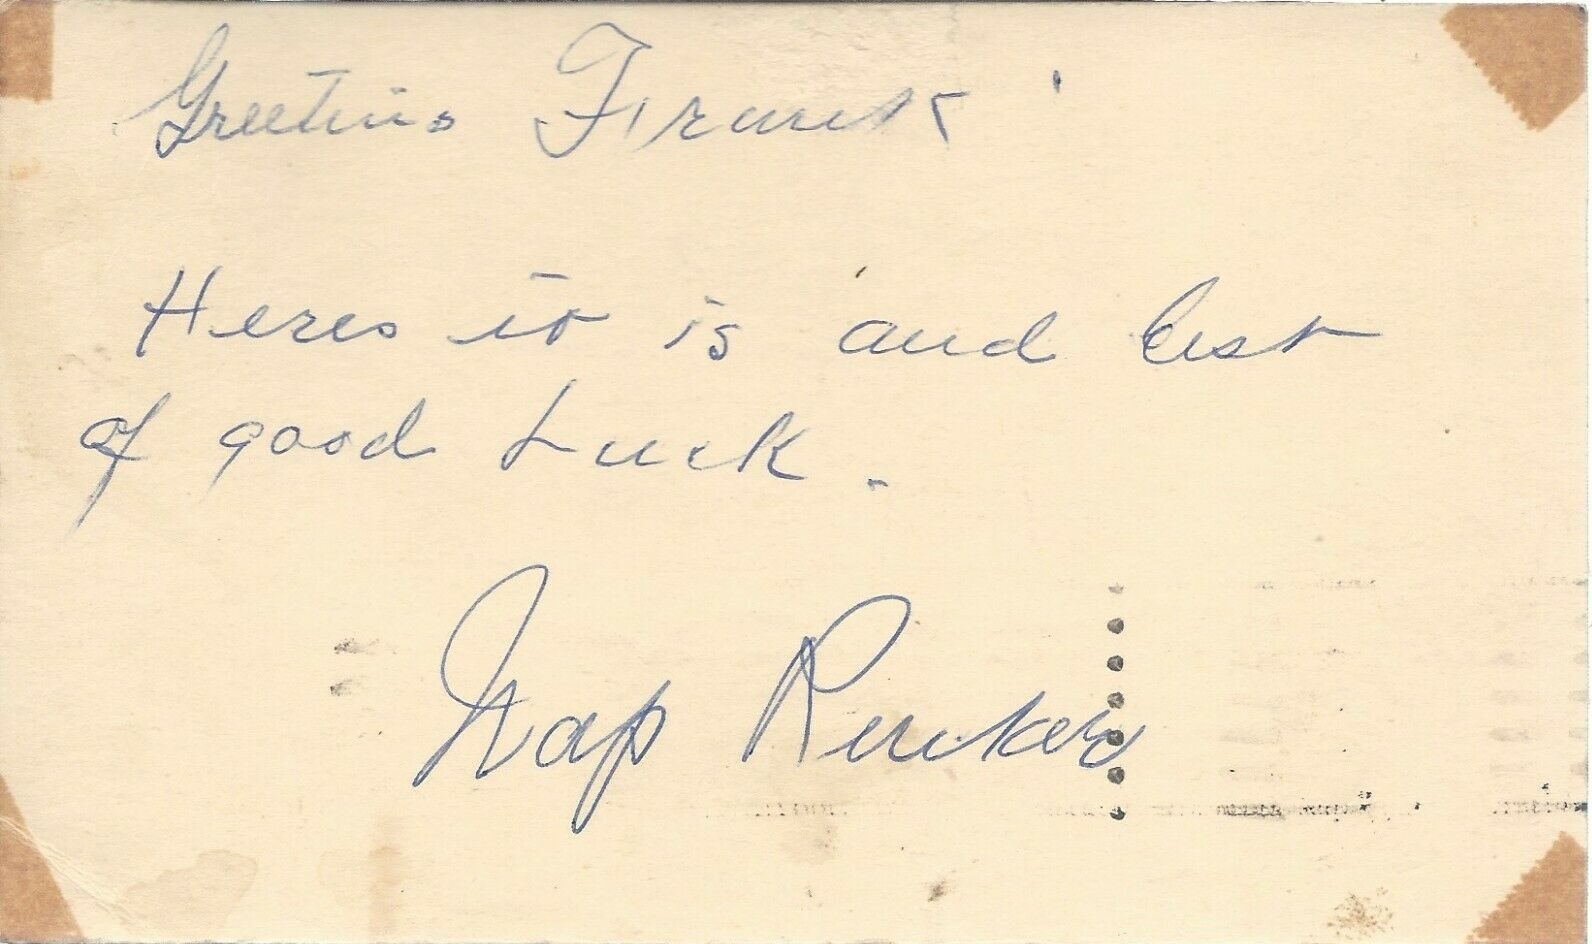 Greetins Frank
Heres it is and best
of good Luck.
Nap Rucker